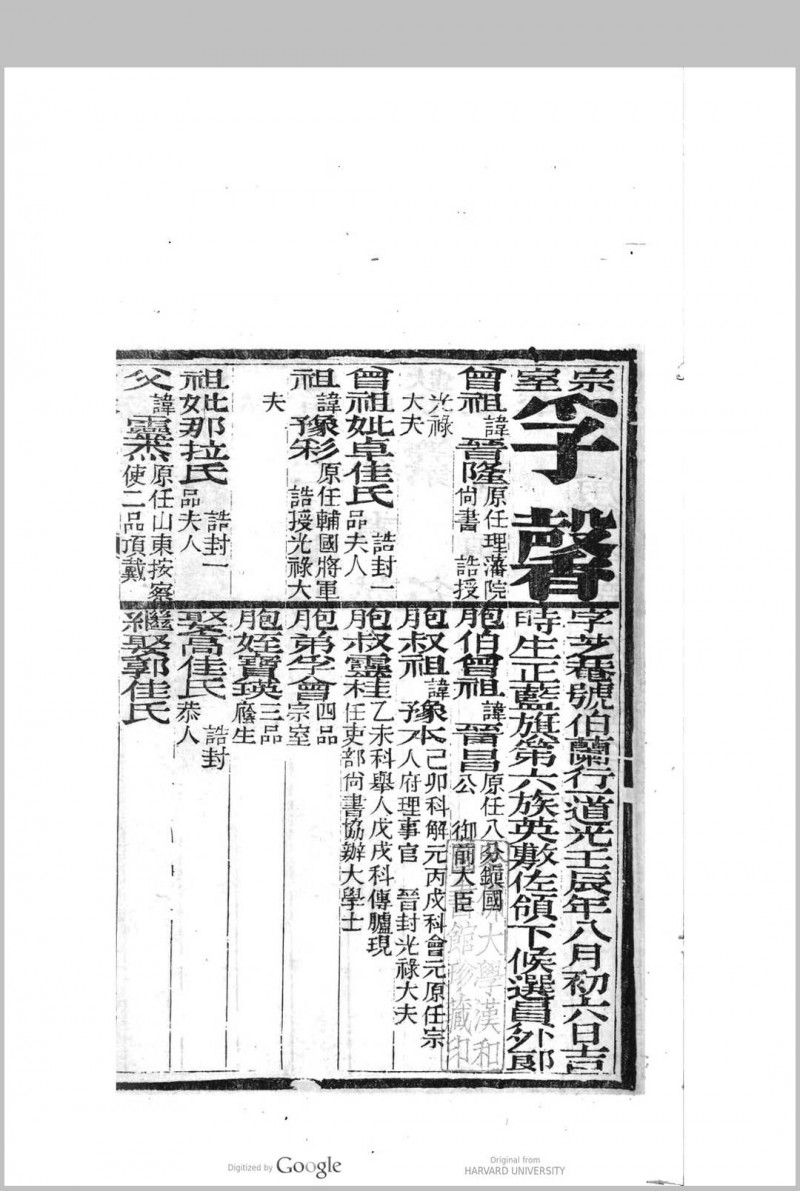 宗室孚馨
字芝菴號伯蘭行一道光壬辰年八月初六日吉
時生正藍旗第六族英數佐領下候選員外郎
曾祖諱晉隆原任理藩院尚書 誥授
光祿大夫
曾祖妣卓佳氏誥封一品夫人
祖諱豫彩原任輔國將軍 誥授光祿大
夫
祖妣那拉氏誥封一品夫人
父諱靈杰原任山東按察使二品頂戴
胞伯曾祖諱晉昌原任八分鎮國公 御前大臣
胞叔祖諱豫本己卯科解元丙戌科會元原任宗人府理事官 晉封光祿大夫
胞叔靈桂乙未科舉人戊戌科傳臚現任吏部尚書協辦大學士
胞弟孚會四品宗室
胞姪寶瑛三品廕生
娶高佳氏誥封恭人
繼娶郭佳氏
大學漢和
書館珍藏印
Digitized by Google
Original from
HARVARD UNIVERSITY